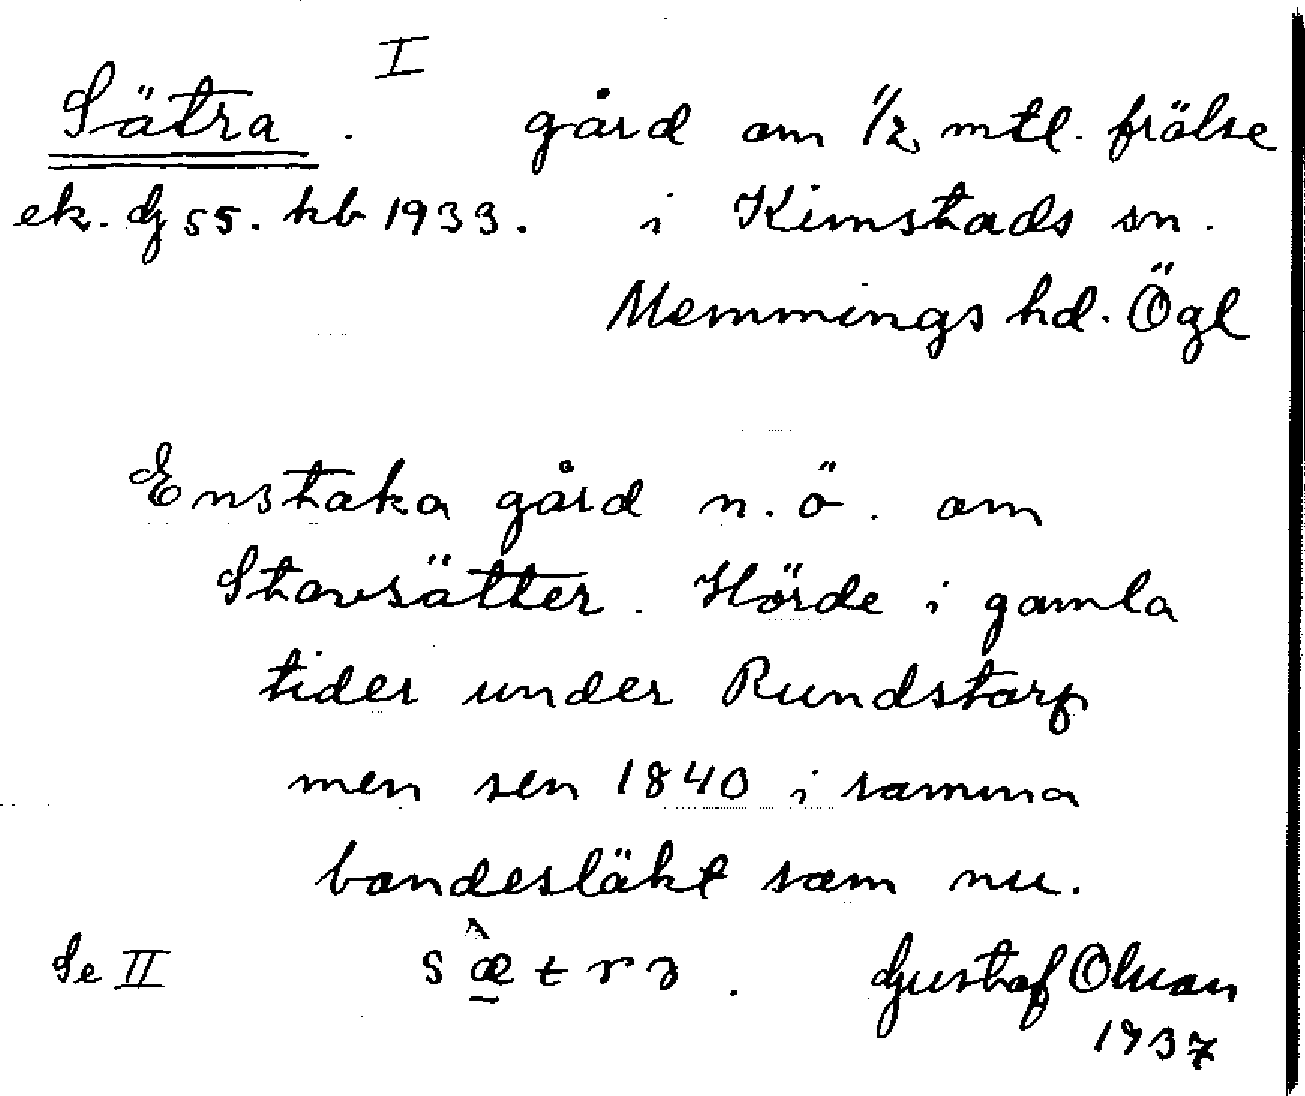 I
Sätra. gård om 1/2 mtl. frälse
ek. dj 55. kb 1933. i Kimstads sn.
Memmings hd. Ögl
Enstaka gård n.ö. om
Stavsätter. Hörde i gamla
tider under Rundstorp
men sen 1840 i samma
bondesläkt som nu.
Se II sæ̀trə. Gustaf Olson
1937